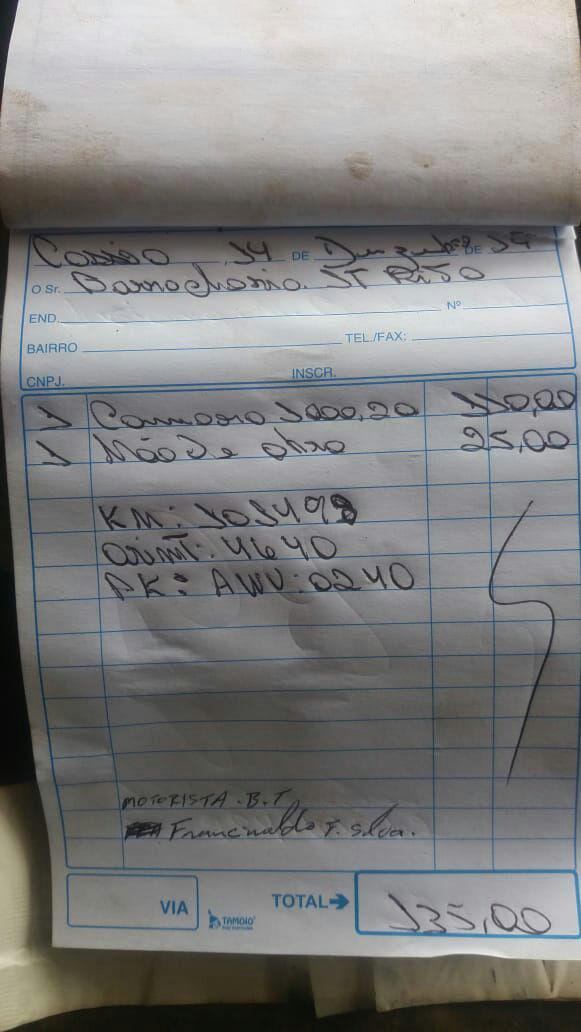 14 DE Dezembro DE
O Sr. Borracharia
END. Nº
BAIRRO TEL./FAX:
CNPJ. INSCR.
1 Camara 1000,20 110,00
1 Mão De obra 25,00
KM: 103498
4640
AWV: 0240
MOTORISTA. B.T
Francinaldo F. Silva.
VIA TAMOIO TOTAL 135,00